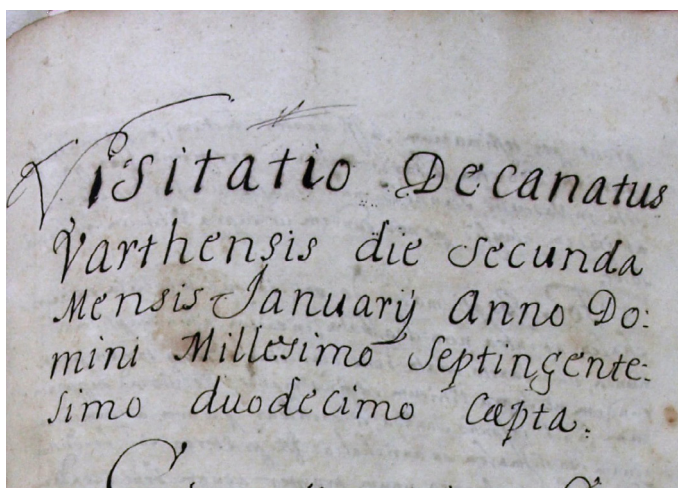 Visitatio Decanatus
Varthensis die Secunda
Mensis January Anno Do:
mini Millesimo Septingente:
simo duodecimo Cæpta.